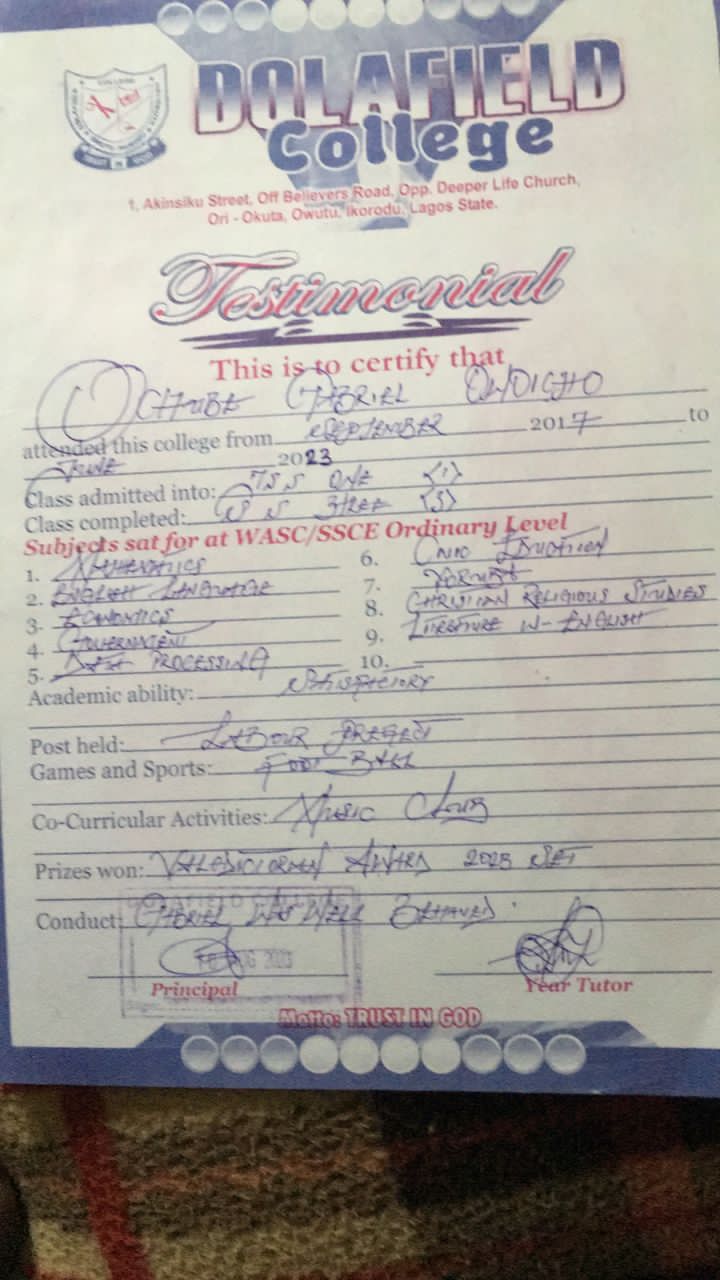 DOLAFIELD
College
1, Akinsiku Street, Off Believers Road, Opp. Deeper Life Church,
Ori - Okuta, Owutu, Ikorodu, Lagos State.
Testimonial
This is to certify that
GABRIEL
attended this college from SEPTEMBER 2017 to
JUNE 2023
Class admitted into: JSS ONE (1)
Class completed: SS THREE (3)
Subjects sat for at WASC/SSCE Ordinary Level
1. MATHEMATICS
2. ENGLISH LANGUAGE
3. ECONOMICS
4. GOVERNMENT
5. DATA PROCESSING
6. CIVIC EDUCATION
7. YORUBA
8. CHRISTIAN RELIGIOUS STUDIES
9. LITERATURE IN-ENGLISH
10.
Academic ability: SATISFACTORY
Post held: LABOUR PREFECT
Games and Sports: FOOT BALL
Co-Curricular Activities: MUSIC CLUB
Prizes won: AWARD 2023 SET
Conduct: GABRIEL WAS WELL BEHAVED.
DOLAFIELD COLLEGE
AUG 2023
Principal
Year Tutor
Motto: TRUST IN GOD